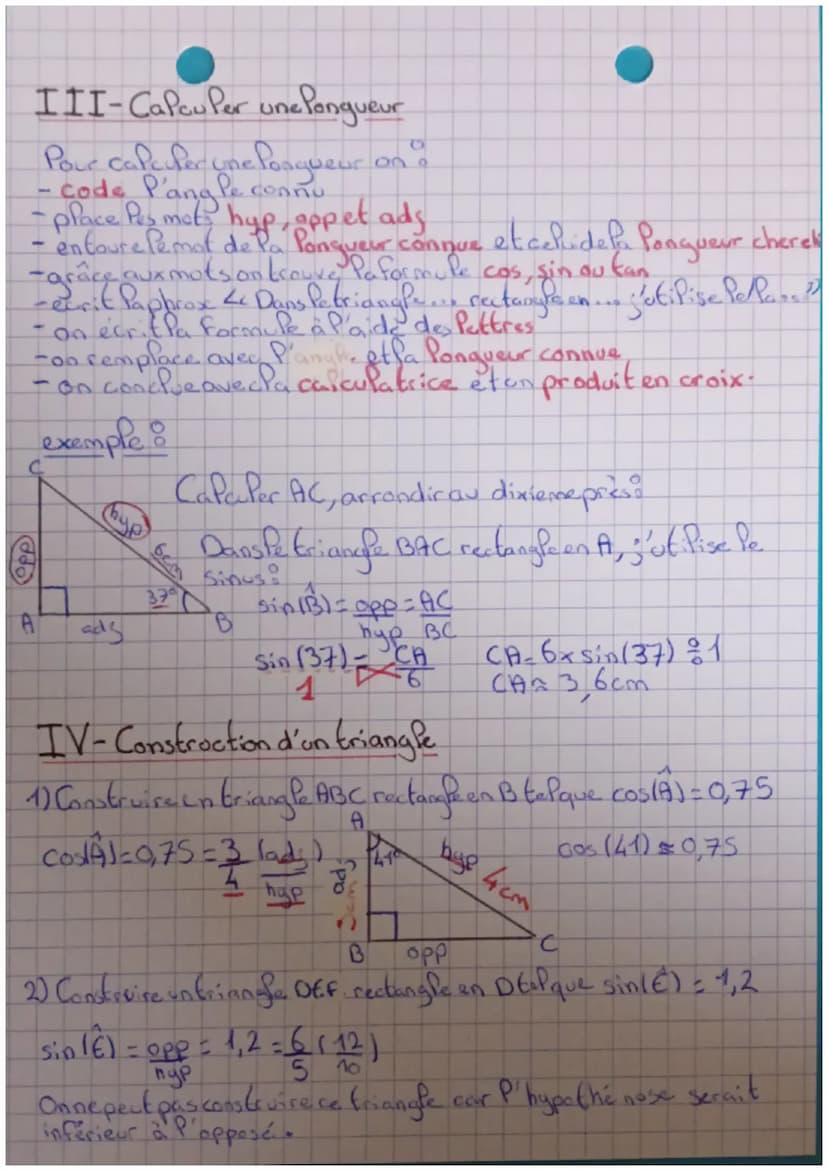 III-Calculer une longueur
Pour calculer une longueur on :
- code l'angle connu
- place les mots hyp, opp et adj
- entoure le mot de la longueur connue et celui de la longueur cherch
- grâce aux mots on trouve la formule cos, sin ou tan
- écrit la phrase << Dans le triangle ... rectangle en ... j'utilise le/la ... >>
- on écrit la formule à l'aide des lettres
- on remplace avec l'angle et la longueur connue
- on conclue avec la calculatrice et un produit en croix.
exemple :
C
Calculer AC, arrondir au dixieme près :
hyp
opp
6cm
Dans le triangle BAC rectangle en A, j'utilise le
sinus :
37°
A
adj
B
sin(B̂) = opp/hyp = AC/BC
sin(37) = CA/6
1
CA = 6 × sin(37) ÷ 1
CA ≈ 3,6cm
IV-Construction d'un triangle
1) Construire un triangle ABC rectangle en B tel que cos(Â) = 0,75
cos(Â) = 0,75 = 3/4 (adj/hyp)
A
41°
hyp
4cm
adj
3cm
B
opp
C
cos(41) ≈ 0,75
2) Construire un triangle DEF rectangle en D tel que sin(Ê) = 1,2
sin(Ê) = opp/hyp = 1,2 = 6/5 (12/10)
On ne peut pas construire ce triangle car l'hypothénose serait
inférieur à l'opposé.